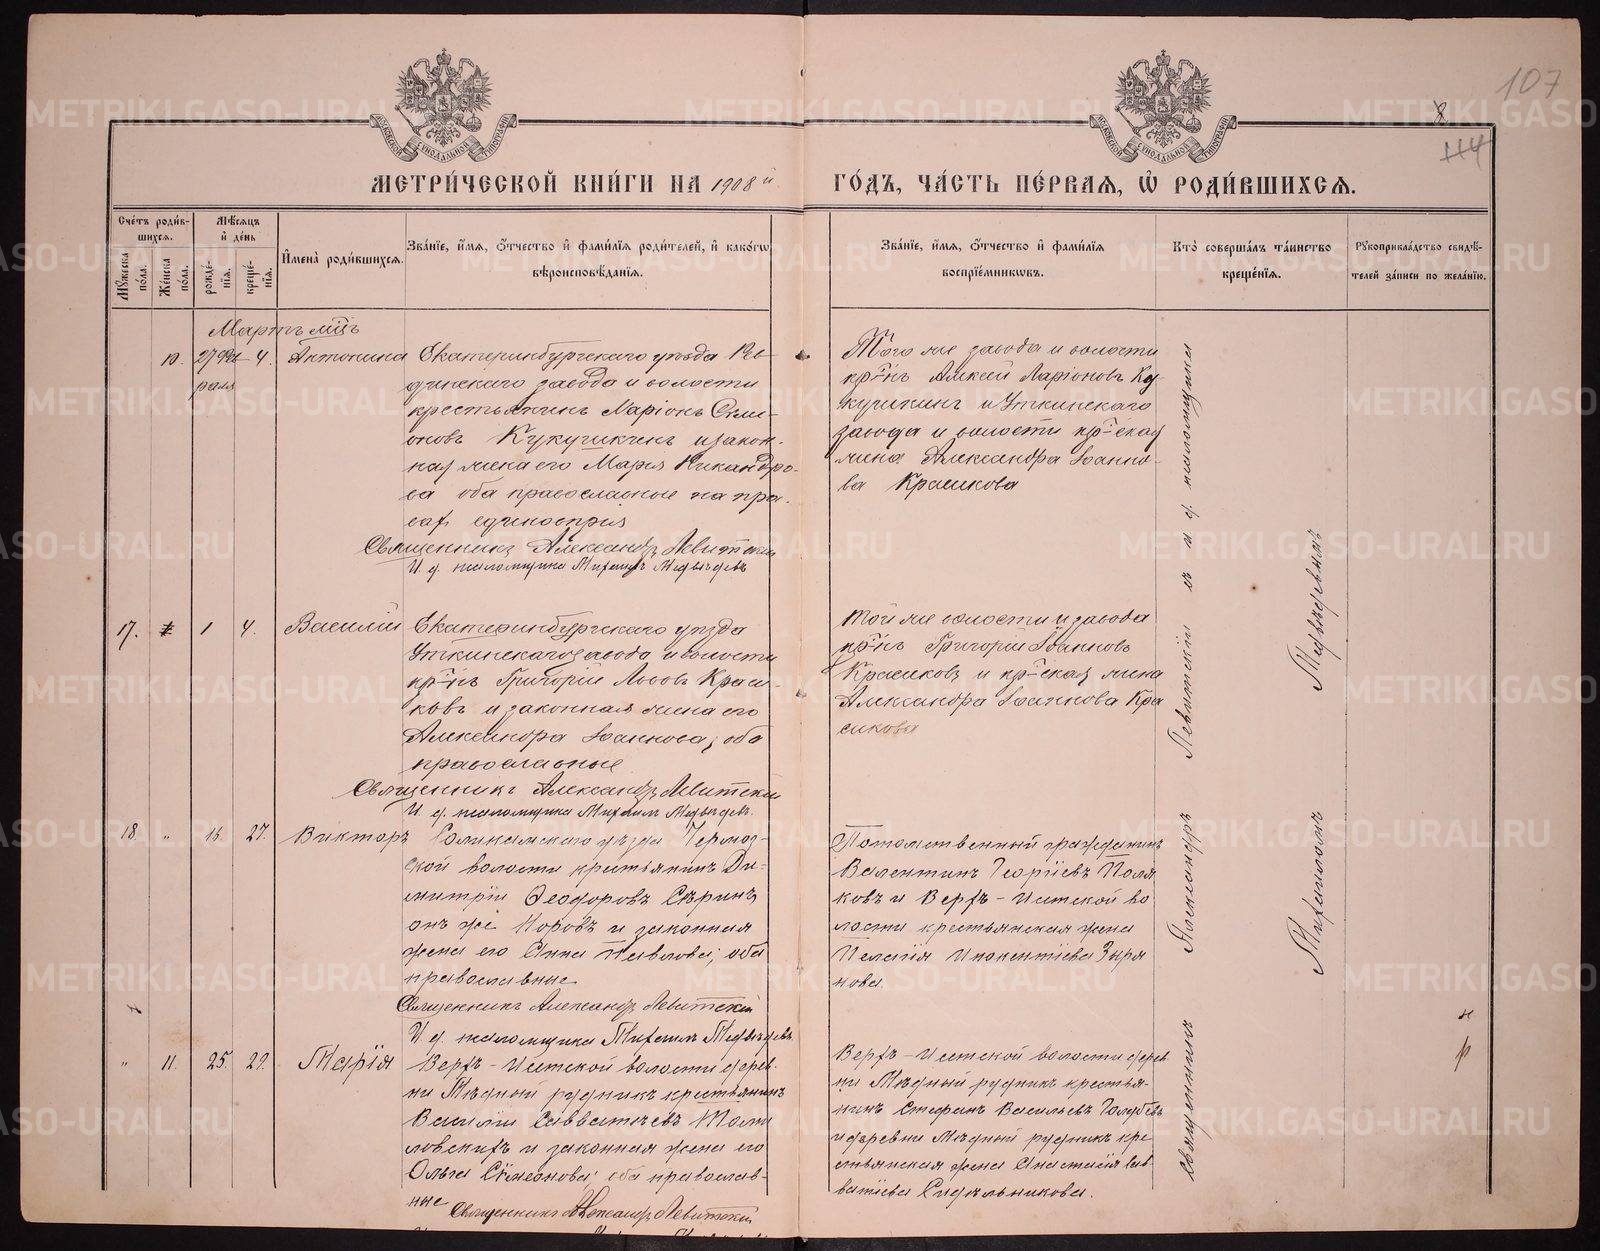 107
114
МЕТРИ́ЧЕСКОЙ КНИ́ГИ НА 1908й ГО́ДЪ, ЧА́СТЬ ПЕ́РВАЯ, Ѡ҆ РОДИ́ВШИХСЯ.
Сче́тъ роди́вшихся.
Мꙋ́жеска по́ла.
Же́нска по́ла.
Мѣ́сяцъ и҆ де́нь
рожде́нїя.
креще́нїя.
И҆мена̀ роди́вшихся.
Зва́нїе, и҆́мя, ѻ҆́тчество и҆ фами́лїя роди́телей, и҆ како́гѡ
вѣроисповѣ́данїя.
Зва́нїе, и҆́мя, ѻ҆́тчество и҆ фами́лїя
воспрїе́мникѡвъ.
Кто̀ соверша́лъ та́инство
креще́нїя.
Рꙋкоприкла́дство свидѣ́-
телей за́писи по жела́нїю.
Мартъ мцъ
10. 27 Фев-
раля
4. Антонина
Екатеринбургскаго уѣзда Рев-
динскаго завода и волости
крестьянинъ Ларіонъ Симе-
оновъ Кукушкинъ и закон-
ная жена его Марія Никандро-
ва оба православные на пра-
вах единовѣрія
Священникъ Александръ Левитскій
И. д. псаломщика Михаилъ Медвѣдевъ
Того же завода и волости
кр-нъ Алексей Ларіоновъ Ку
кушкинъ и Уткинскаго
завода и волости кр-ская
жена Александра Іоанно-
ва Красикова
17. 1 4. Василій
Екатеринбургскаго уѣзда
Уткинскаго завода и волости
кр-нъ Григорій Львовъ Краси-
ковъ и законная жена его
Александра Іоаннова, оба
православные
Священникъ Александръ Левитскій
И. д. псаломщика Михаилъ Медвѣдевъ.
Той же волости и завода
кр-нъ Григорій Іоанновъ
Красиковъ и кр-ская жена
Александра Іоаннова Кра
сикова
18. " 16. 27. Викторъ
Соликамскаго уѣзда Чермоз-
ской волости крестьянинъ Ди-
митрій Ѳеодоровъ Сѣринъ
онъ же Норовъ и законная
жена его Анна Павлова; оба
православные
Священникъ Александръ Левитскій
И. д. псаломщика Михаилъ Медвѣдевъ
Потомственный гражданинъ
Валентинъ Георгіевъ Поля
ковъ и Верхъ-Исетской во
лости крестьянская жена
Пелагія Инокентіева Зыря
нова.
" 11. 25. 29. Марія
Верхъ-Исетской волости дерев-
ни Мѣдный рудникъ крестьянинъ
Василій Савватіевъ
и законная жена его
Ольга Сѵмеонова; оба православ-
ные
Священникъ Александръ Левитскій
Верхъ-Исетской волости дерев
ни Мѣдный рудникъ крестья-
нинъ Стефанъ Васильевъ Голубевъ
и деревни Мѣдный рудникъ кре
стьянская жена Анастасія Сав
ватіева Сидѣльникова.
Священникъ Александръ Левитскій съ и. д. псаломщика
Михаиломъ Медвѣдевымъ